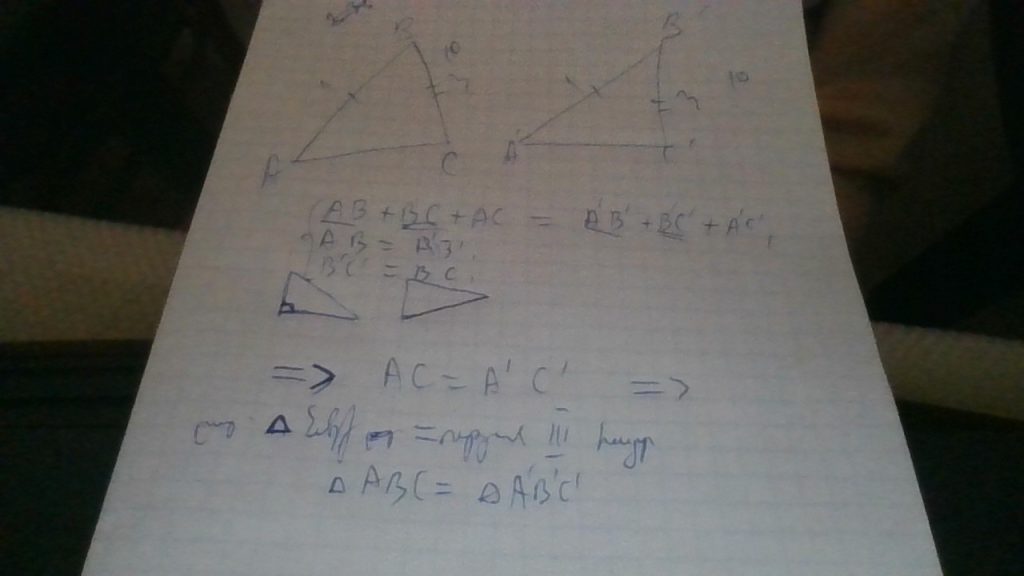 B 10 B' 10
A C A' C'
AB + BC + AC = A'B' + B'C' + A'C',
AB = A'B',
B'C' = BC,
=> AC = A'C' =>
Δ = III
Δ ABC = Δ A'B'C'